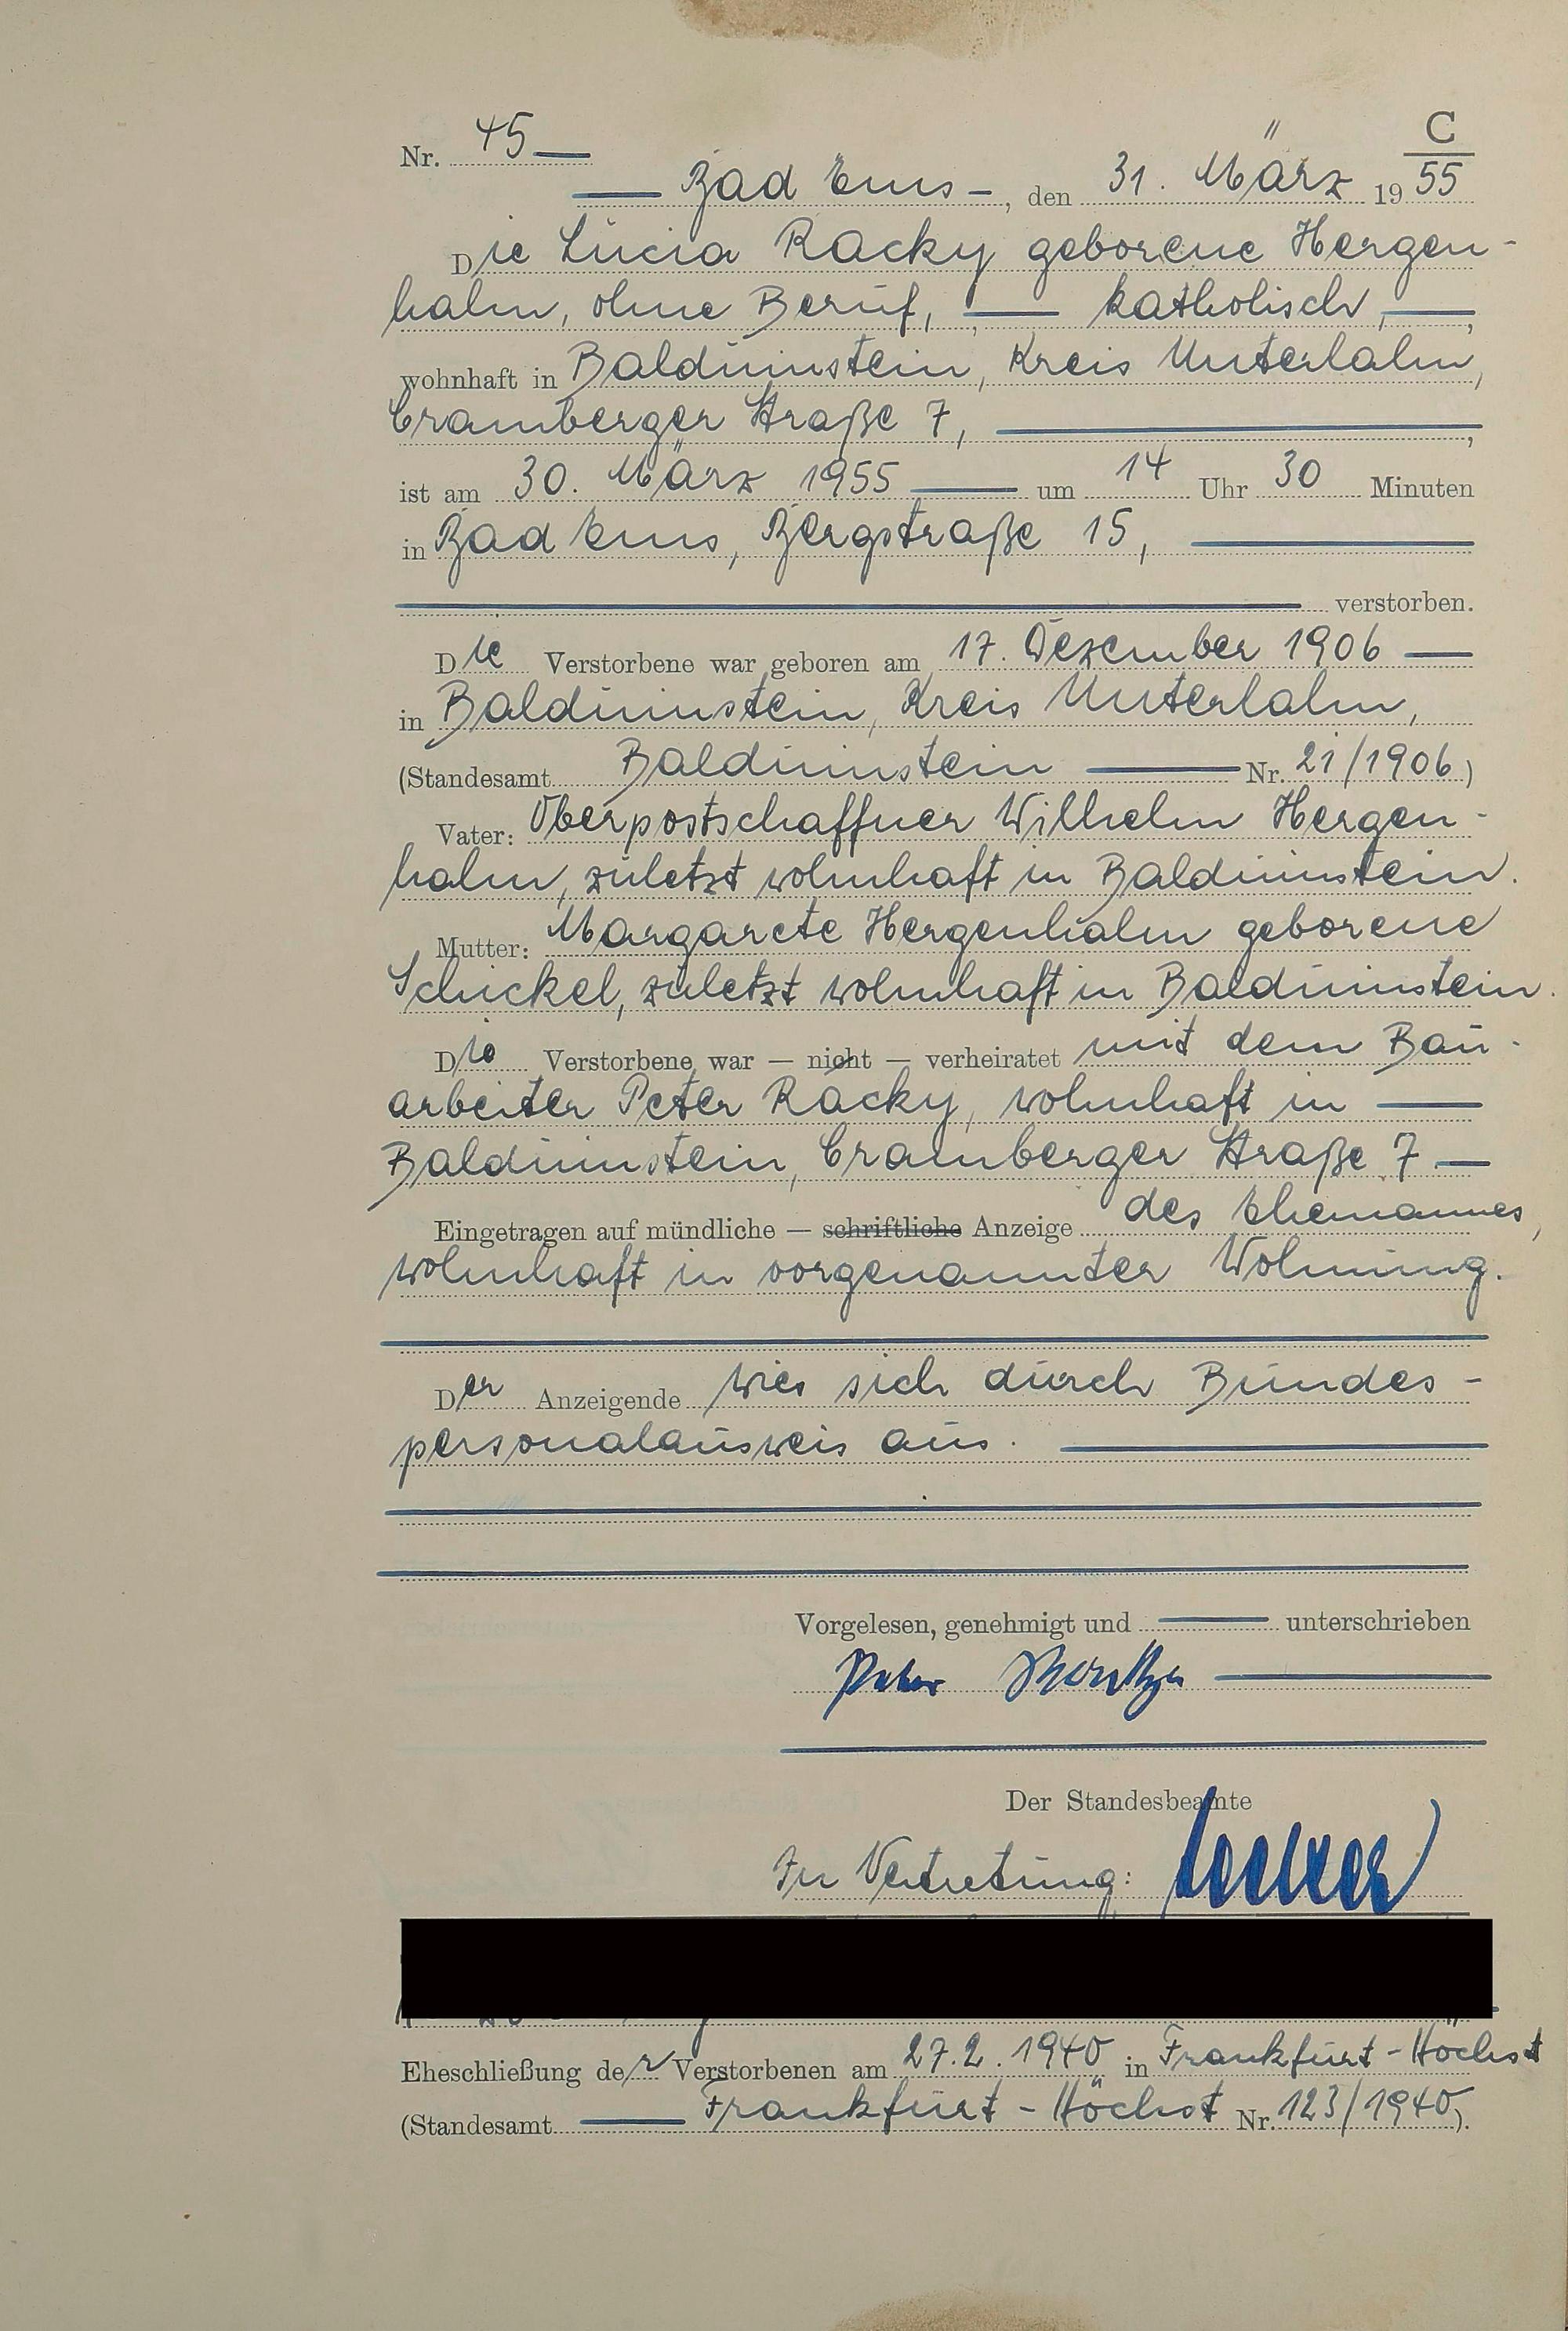 C
Nr. 45
Bad Ems, den 31. März 1955
Die Lucia Racky geborene Hergen-
hahn, ohne Beruf, katholisch,
wohnhaft in Balduinstein, Kreis Unterlahn,
Cramberger Straße 7,
ist am 30. März 1955 um 14 Uhr 30 Minuten
in Bad Ems, Bergstraße 15,
verstorben.
Die Verstorbene war geboren am 17. Dezember 1906
in Balduinstein, Kreis Unterlahn,
(Standesamt Balduinstein Nr. 21/1906)
Vater: Oberpostschaffner Wilhelm Hergen-
hahn, zuletzt wohnhaft in Balduinstein.
Mutter: Margarete Hergenhahn geborene
Schickel, zuletzt wohnhaft in Balduinstein.
Die Verstorbene war — nicht — verheiratet mit dem Bau-
arbeiter Peter Racky, wohnhaft in
Balduinstein, Cramberger Straße 7
Eingetragen auf mündliche — schriftliche Anzeige des Ehemannes,
wohnhaft in vorgenannter Wohnung.
Der Anzeigende wies sich durch Bundes-
personalausweis aus.
Vorgelesen, genehmigt und unterschrieben
Peter
Der Standesbeamte
In Vertretung:
Eheschließung der Verstorbenen am 27.2.1940 in Frankfurt-Höchst
(Standesamt Frankfurt-Höchst Nr. 123/1940).